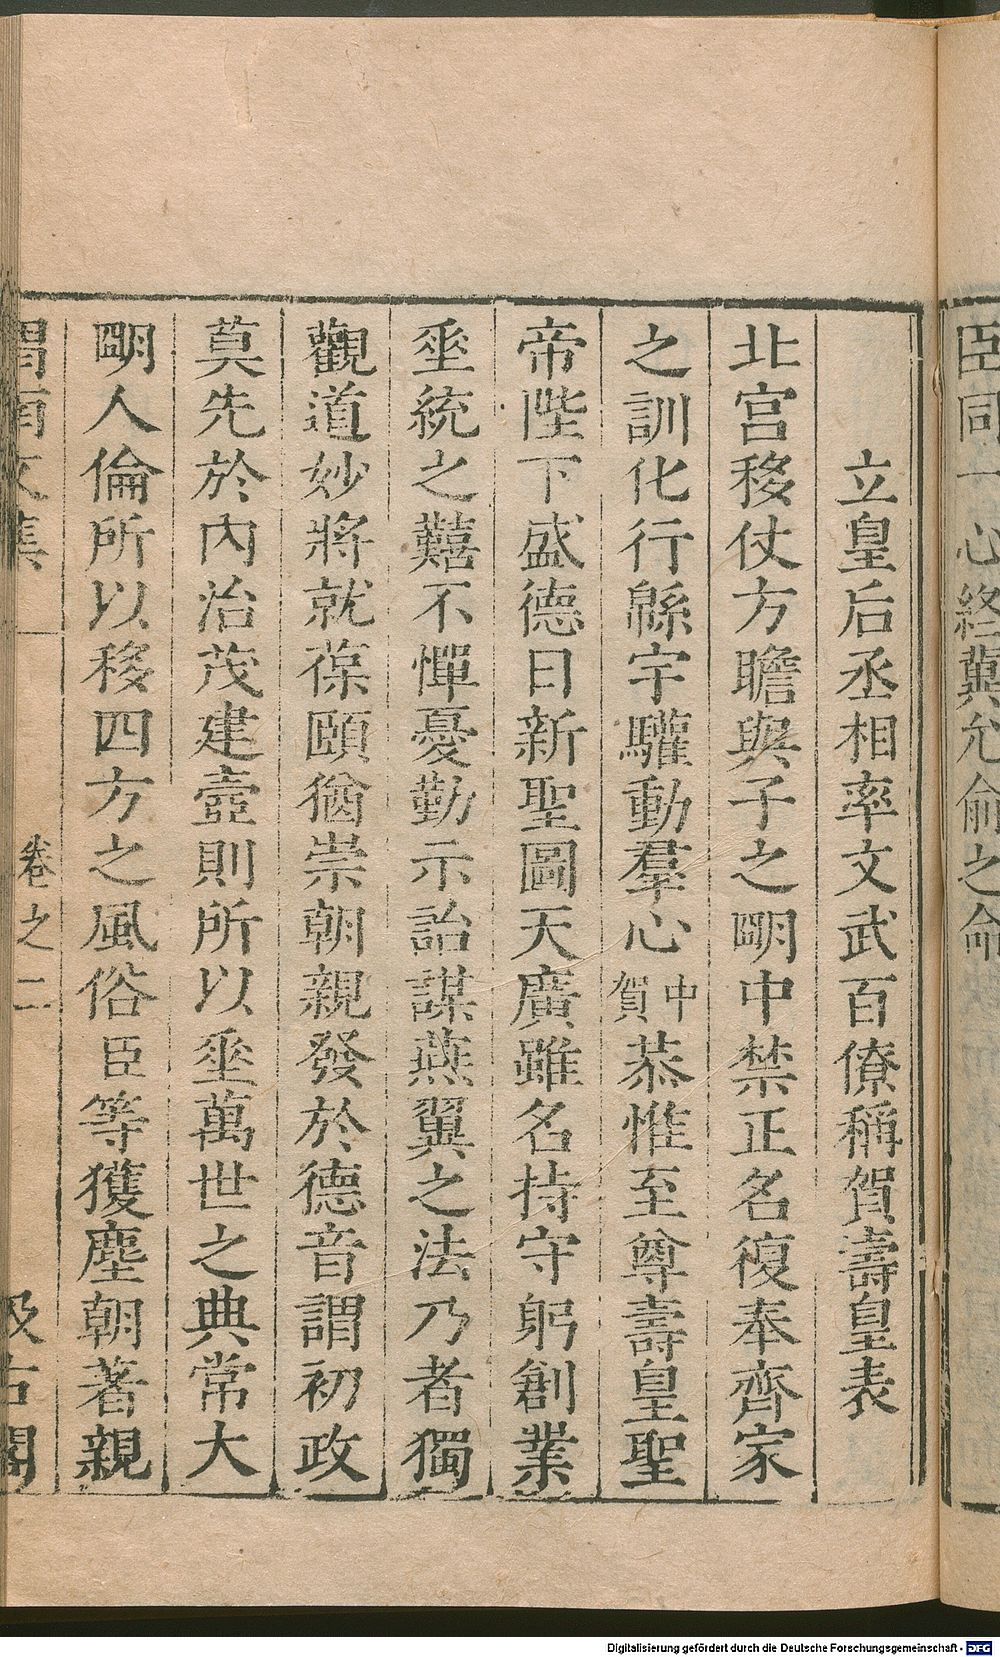 臣同一心終冀允俞之命
立皇后丞相率文武百僚稱賀壽皇表
北宮移仗方瞻與子之朙中禁正名復奉齊家
之訓化行緜宇驩動羣心中賀恭惟至尊壽皇聖
帝陛下盛德日新聖圖天廣雖名持守躬創業
垂統之囏不憚憂勤示詒謀燕翼之法乃者獨
觀道妙將就葆頤猶崇朝親發於德音謂初政
莫先於內治茂建壼則所以垂萬世之典常大
朙人倫所以移四方之風俗臣等獲塵朝著親
渭南文集
卷之二
汲古閣
Digitalisierung gefördert durch die Deutsche Forschungsgemeinschaft - DFG